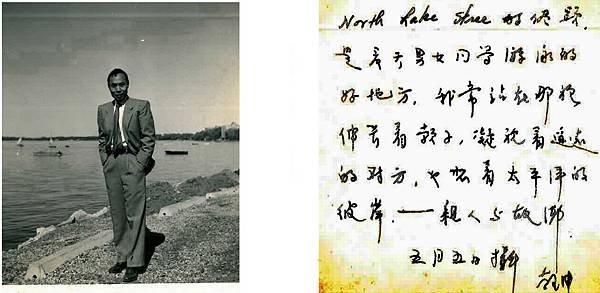 North Lake Shore 的
是夏天男女同學游泳的
好地方. 我常站在那裡
伸長着頸子, 凝視着遙遠
的對方, 着太平洋的
彼岸. —— 親人与故鄉.
五月五日攝